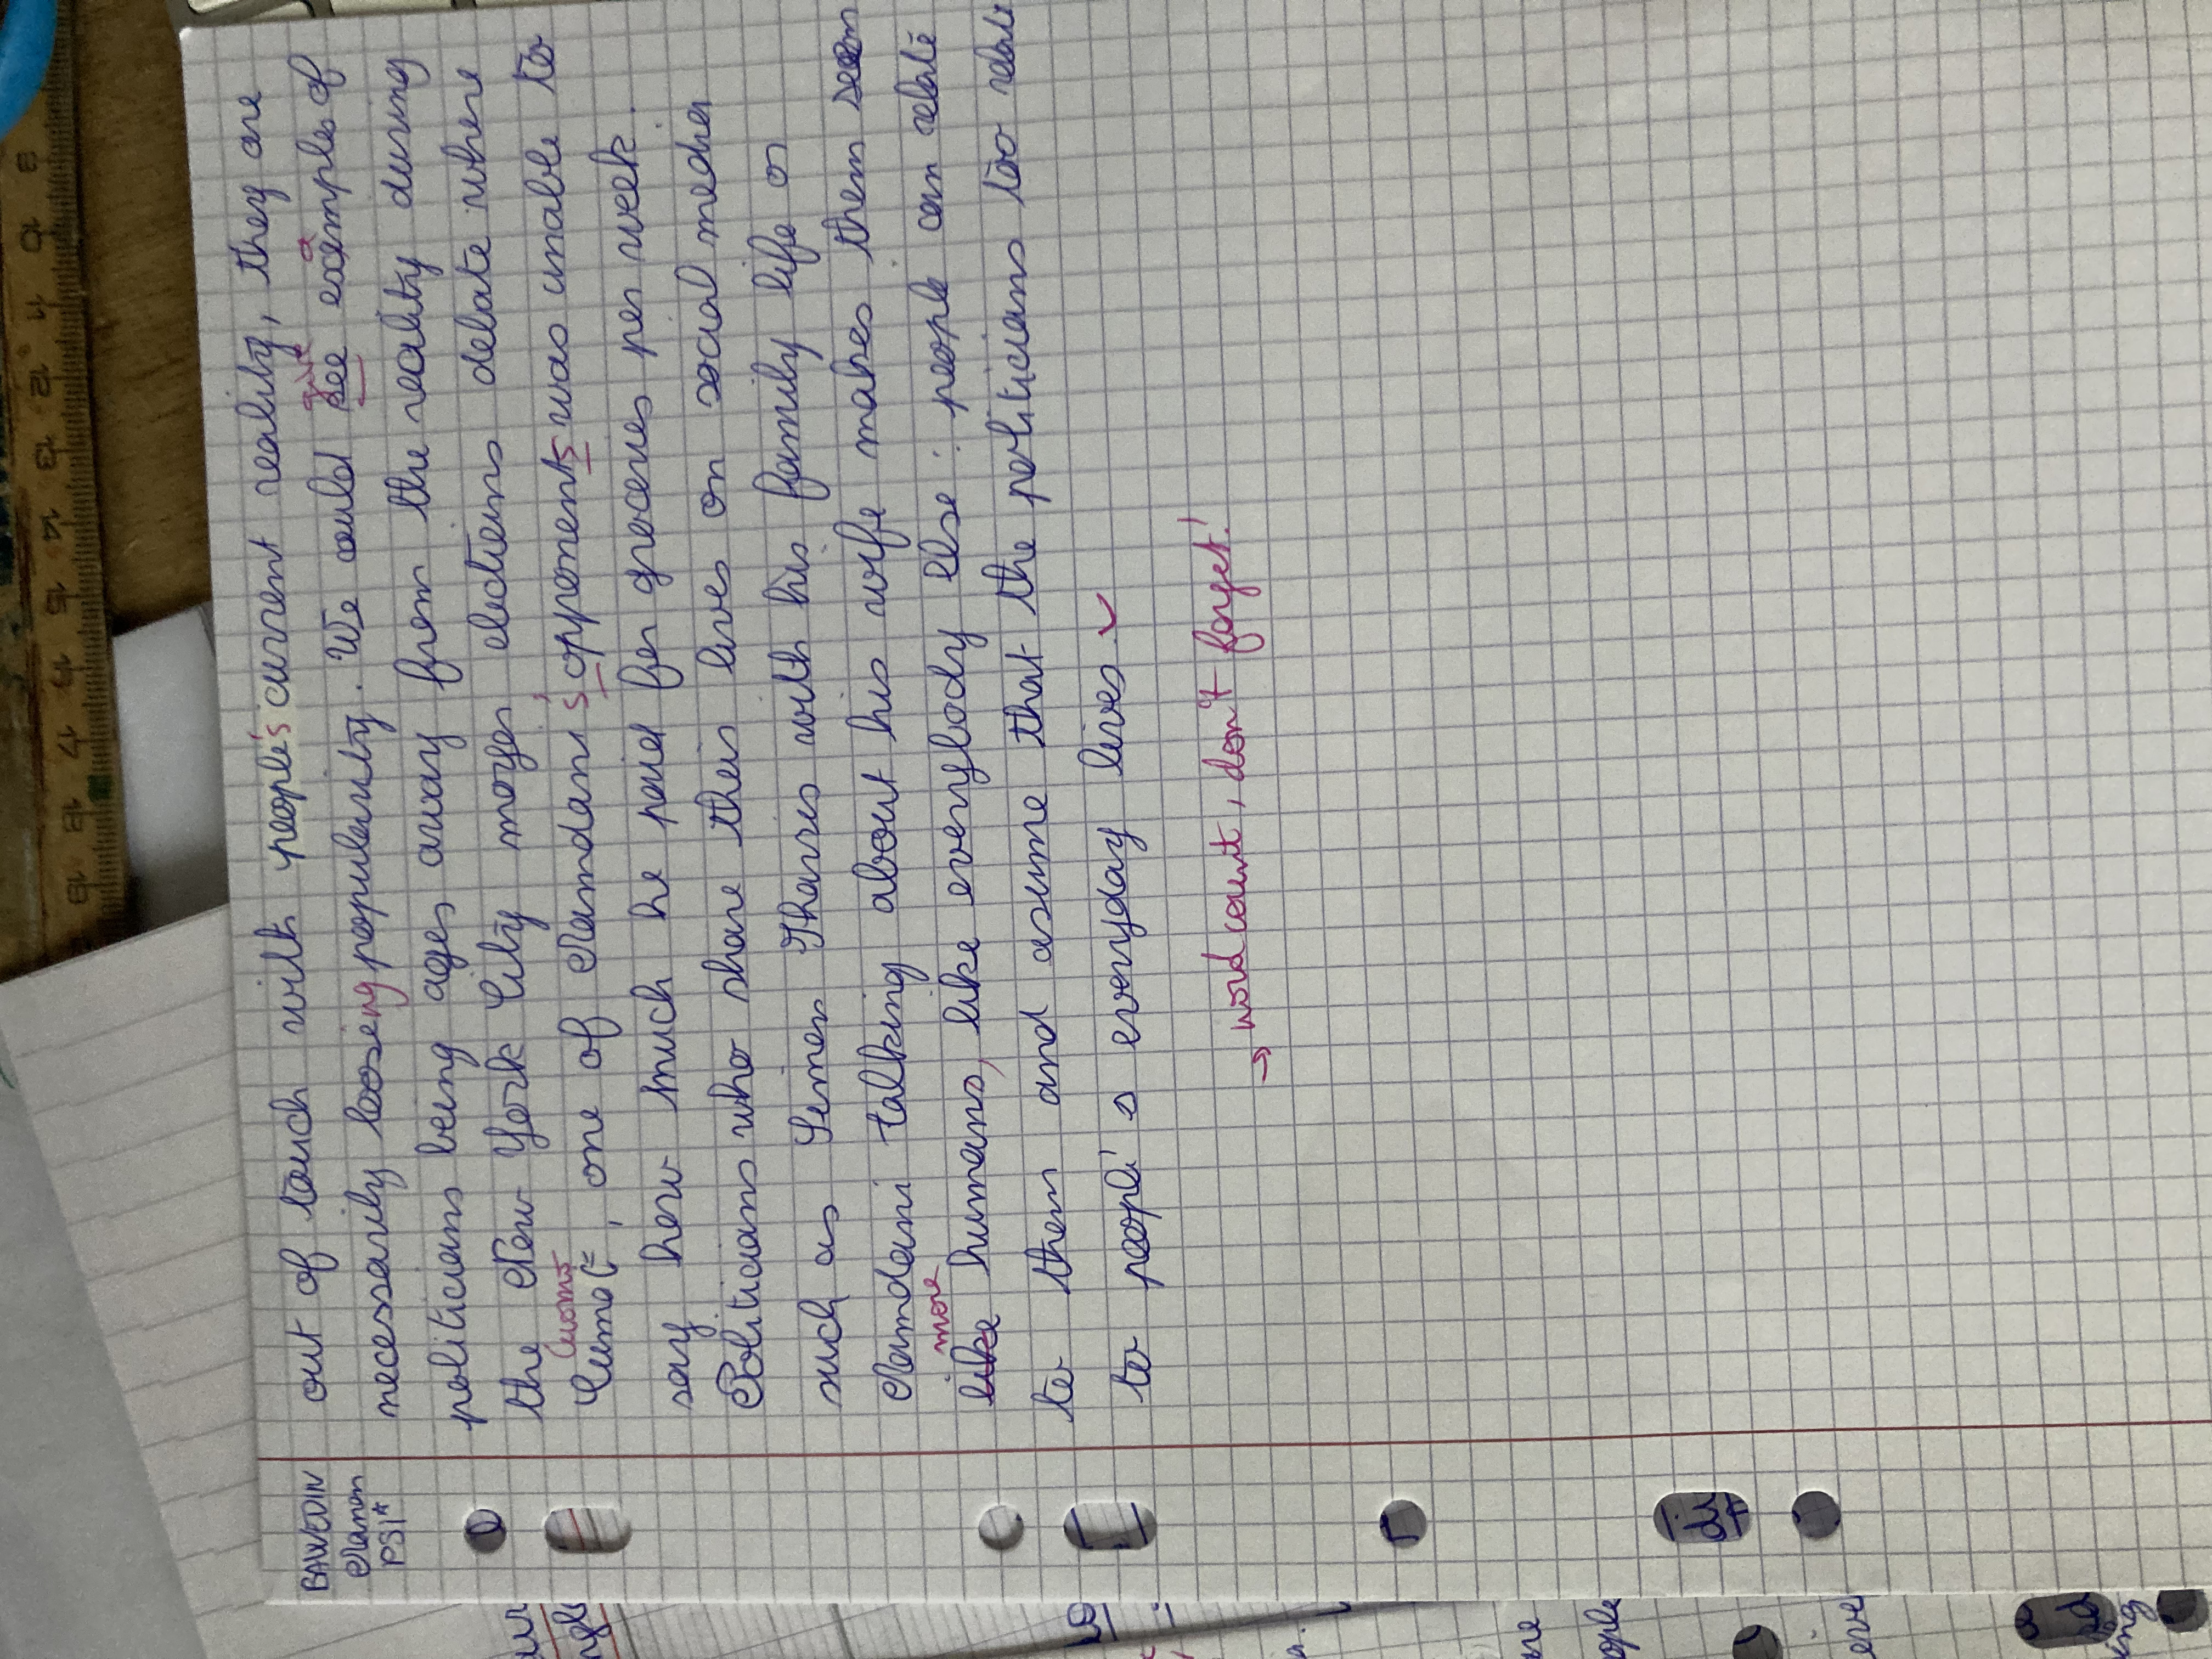 BAWEDIN
Manon
PSI*
out of touch with people's current reality, they are
necessarily loosing popularity. We could see examples of
give
a
politicians being ages away from the reality during
the New York City mayor elections debate where
Cuomo
, one of Mamdani's opponents was unable to
say how much he paid for groceries per week.
Politicians who share their lives on social media
such as Simon Harris with his family life or
Mamdani talking about his wife makes them seem
more
like humans, like everybody else : people can relate
to them and assume that the politicians too relate
to people's everyday lives
→ word count, don't forget!
8
10
11
12
13
14
15
17
18
19